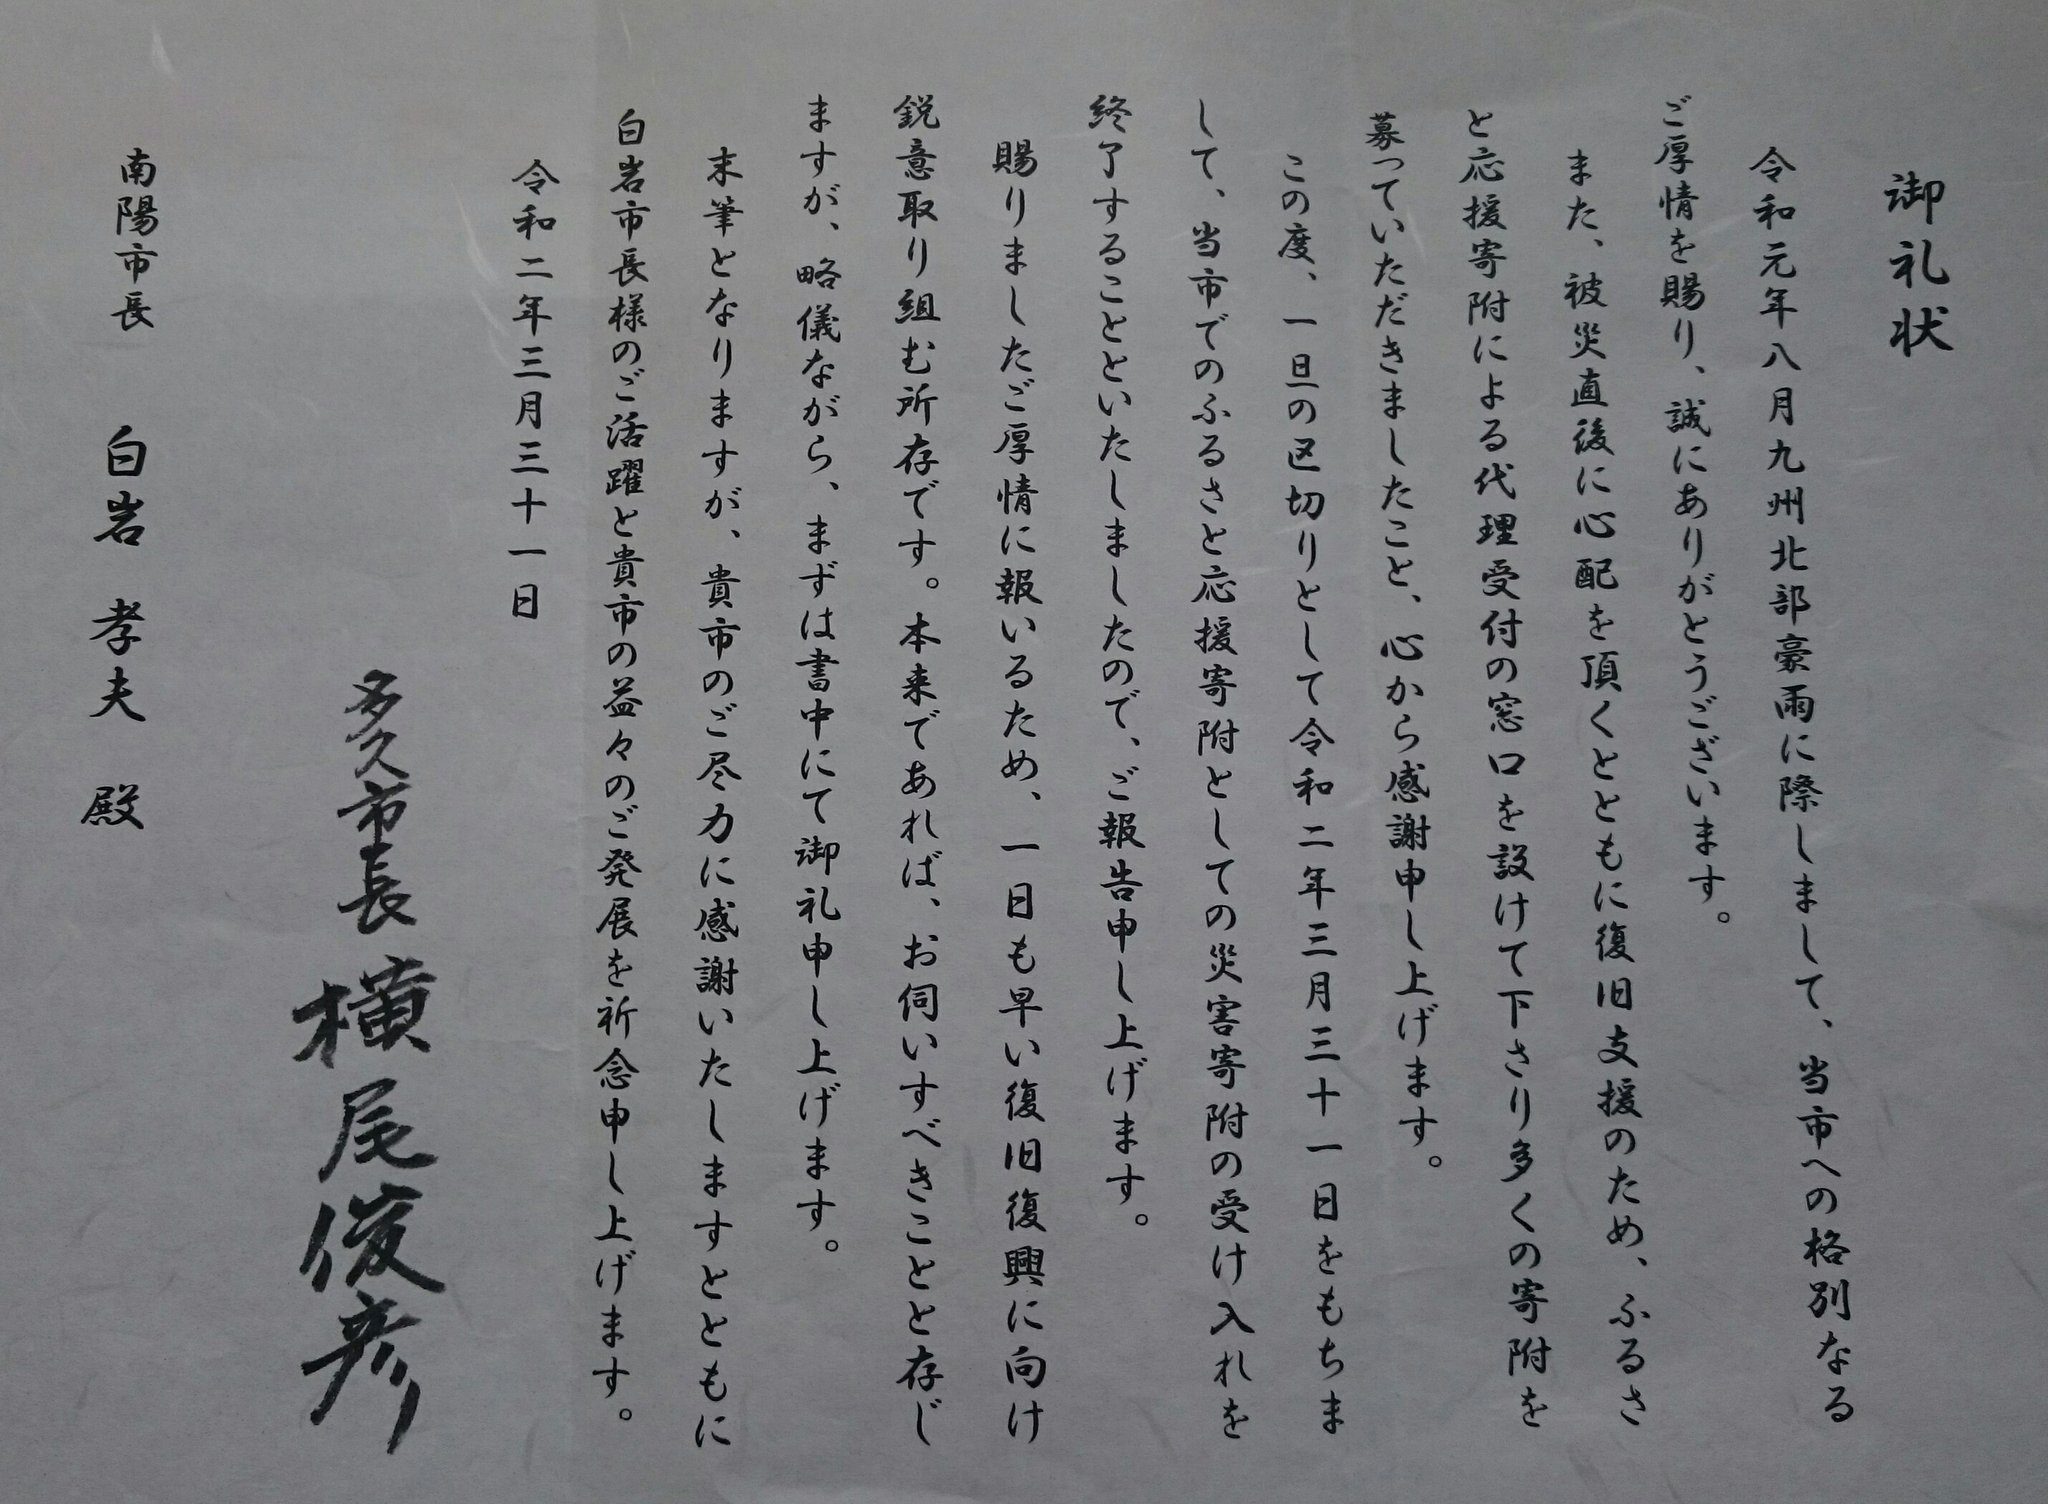 御礼状
令和元年八月九州北部豪雨に際しまして、当市への格別なる
ご厚情を賜り、誠にありがとうございます。
また、被災直後に心配を頂くとともに復旧支援のため、ふるさ
と応援寄附による代理受付の窓口を設けて下さり多くの寄附を
募っていただきましたこと、心から感謝申し上げます。
この度、一旦の区切りとして令和二年三月三十一日をもちま
して、当市でのふるさと応援寄附としての災害寄附の受け入れを
終了することといたしましたので、ご報告申し上げます。
賜りましたご厚情に報いるため、一日も早い復旧復興に向け
鋭意取り組む所存です。本来であれば、お伺いすべきことと存じ
ますが、略儀ながら、まずは書中にて御礼申し上げます。
末筆となりますが、貴市のご尽力に感謝いたしますとともに
白岩市長様のご活躍と貴市の益々のご発展を祈念申し上げます。
令和二年三月三十一日
多久市長 横尾俊彦
南陽市長 白岩孝夫 殿